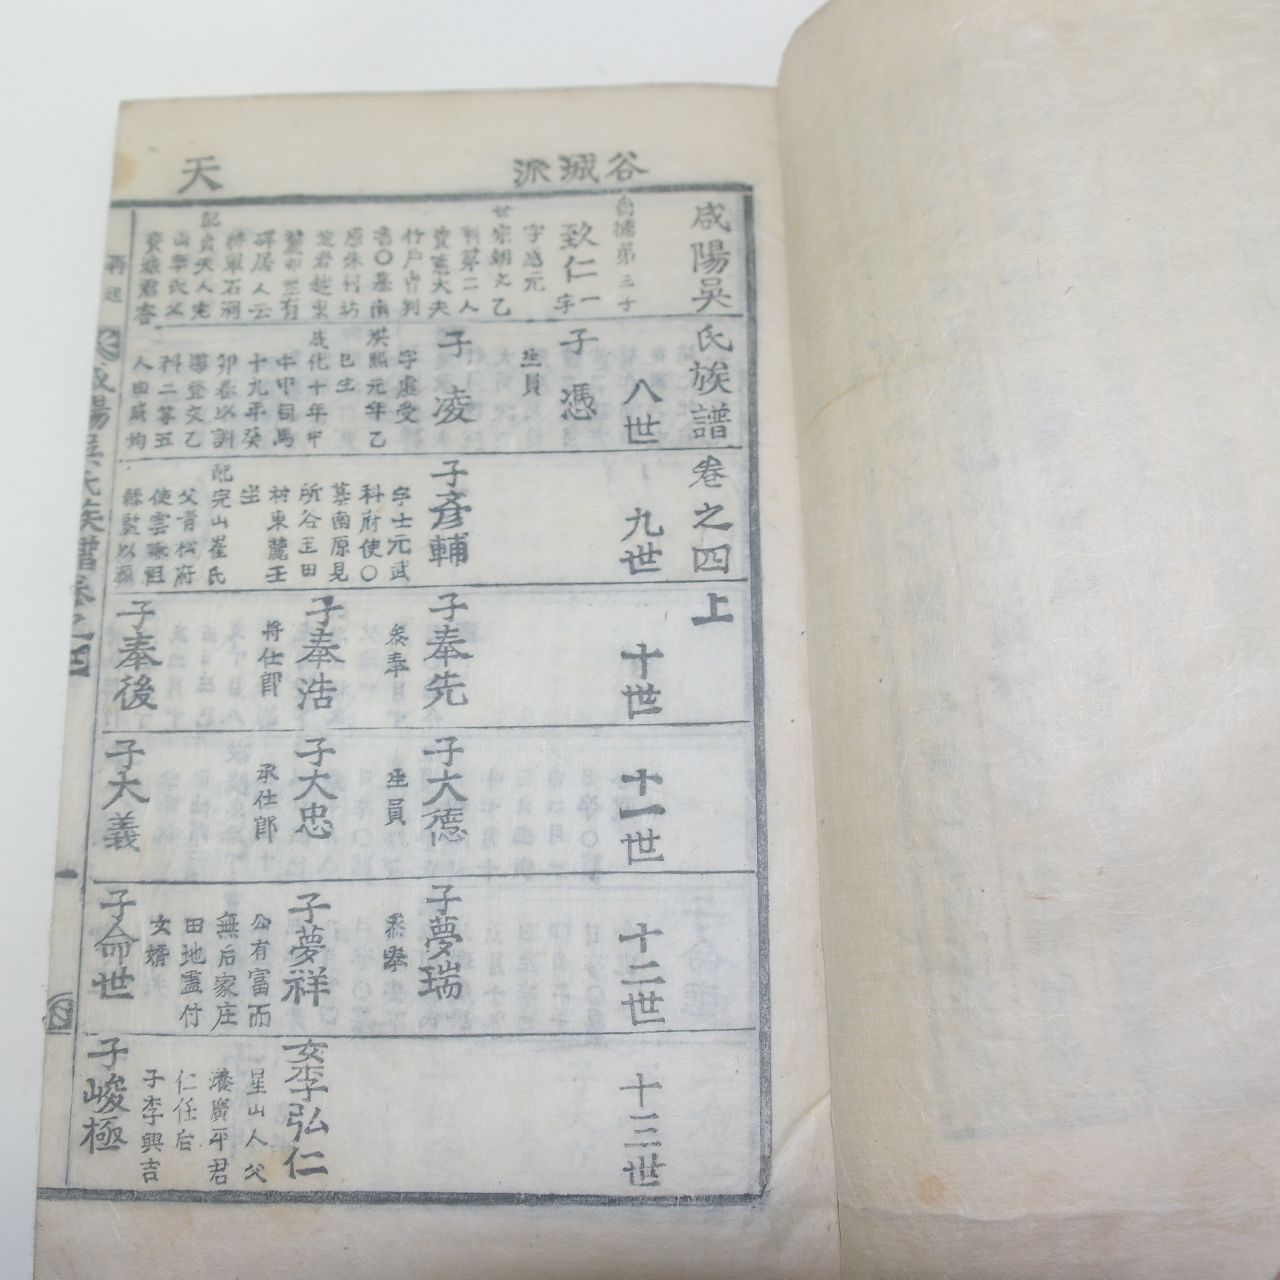 谷城派
天
咸陽吳氏族譜卷之四上
八世
九世
十世
十一世
十二世
十三世
尚德第三子
致仁一字
字忠元
世宗朝文乙
科第二人
資憲大夫
行戶曹判
書〇墓南
原朱村坊
有
碑居人云
將軍石洞
配貞夫人完
山李氏父
子憑
生員
子凌
字虛受
洪熙元年乙
巳生
成化十年甲
午中司馬
十九年癸
卯春以訓
導登文乙
科二等五
人由成均
子彥輔
字士元武
科府使〇
墓南原見
所谷王田
村東麓壬
坐
配完山崔氏
父青松府
使雲琢祖
縣監以源
子奉先
參奉
子奉浩
將仕郎
子奉後
子大德
生員
子大忠
承仕郎
子大義
子夢瑞
參奉
子夢祥
公有富而
無后家庄
田地盡付
女壻
子命世
女李弘仁
星山人父
廣平君
仁任后
子李興吉
子峻極
咸陽吳氏族譜卷之四
一